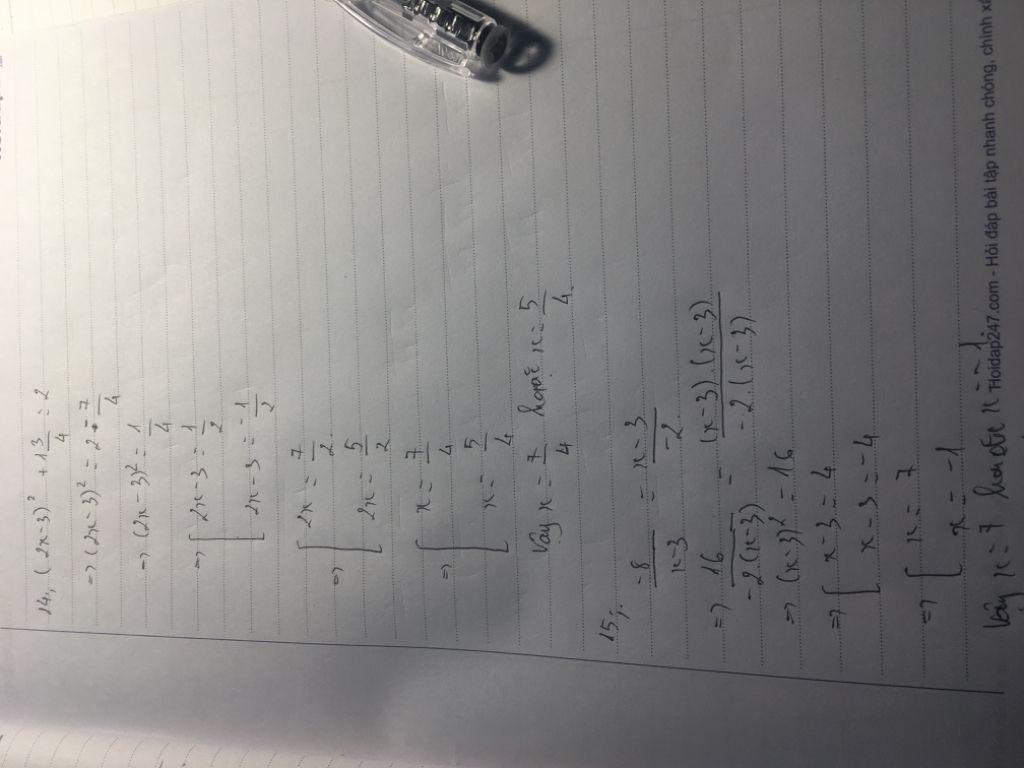 14, (2x-3)² + 1 3/4 = 2
=> (2x-3)² = 2 - 7/4
=> (2x-3)² = 1/4
=> [ 2x-3 = 1/2
[ 2x-3 = -1/2
=> [ 2x = 7/2
[ 2x = 5/2
=> [ x = 7/4
[ x = 5/4
Vậy x = 7/4 hoặc x = 5/4
15,
-8/x-3 = x-3/-2
=> 16/-2.(x-3) = (x-3).(x-3)/-2.(x-3)
=> (x-3)² = 16
=> [ x-3 = 4
[ x-3 = -4
=> [ x = 7
[ x = -1
Vậy x = 7 hoặc x = -1.
Hoidap247.com - Hỏi đáp bài tập nhanh chóng, chính xá